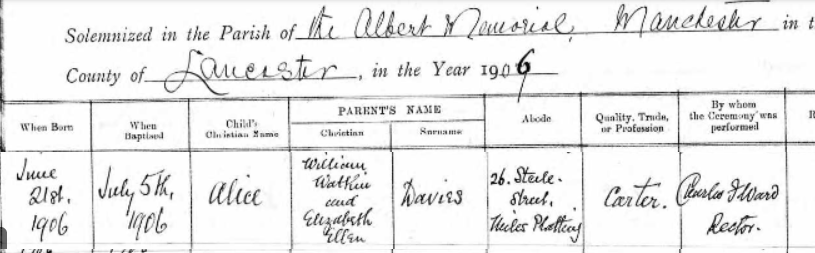 Solemnized in the Parish of the Albert Memorial, Manchester in
County of Lancaster, in the Year 1906
PARENT'S NAME
When Born
When Baptised
Child's Christian Name
Christian
Surname
Abode
Quality, Trade, or Profession
By whom the Ceremony was performed
June 21st, 1906
July 5th, 1906
Alice
William Watkin and Elizabeth Ellen
Davies
26. Street, Miles Platting
Carter.
Charles Ward Rector.